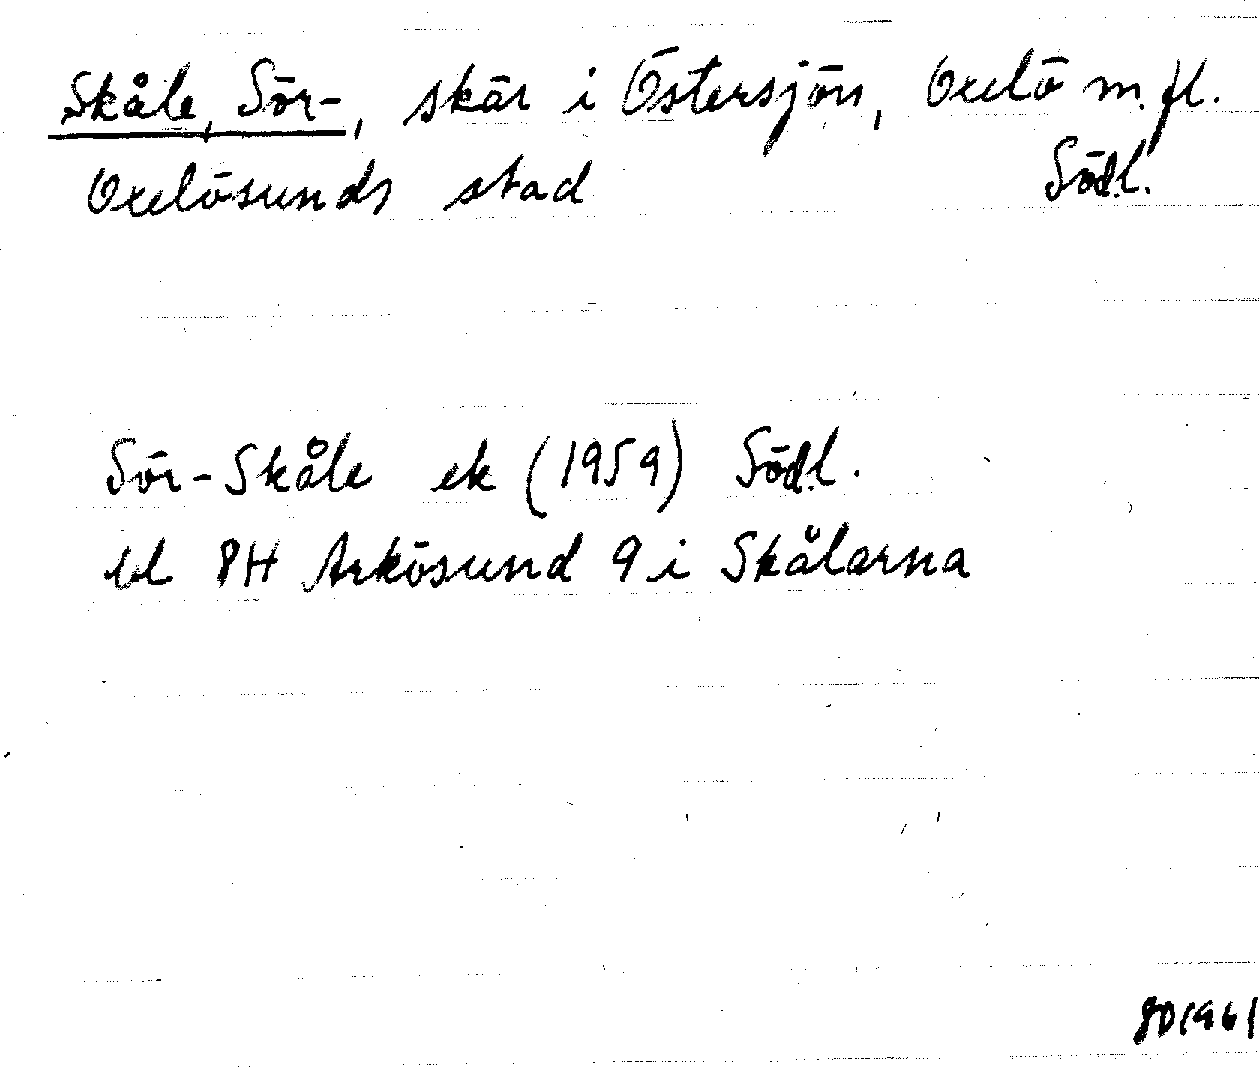 Skåle, Sör-, skär i Östersjön, Oxelö m.fl.
Oxelösunds stad Södl.
Sör-Skåle ek (1959) Södl.
bl 8H Arkösund 9 i Skålarna
1961